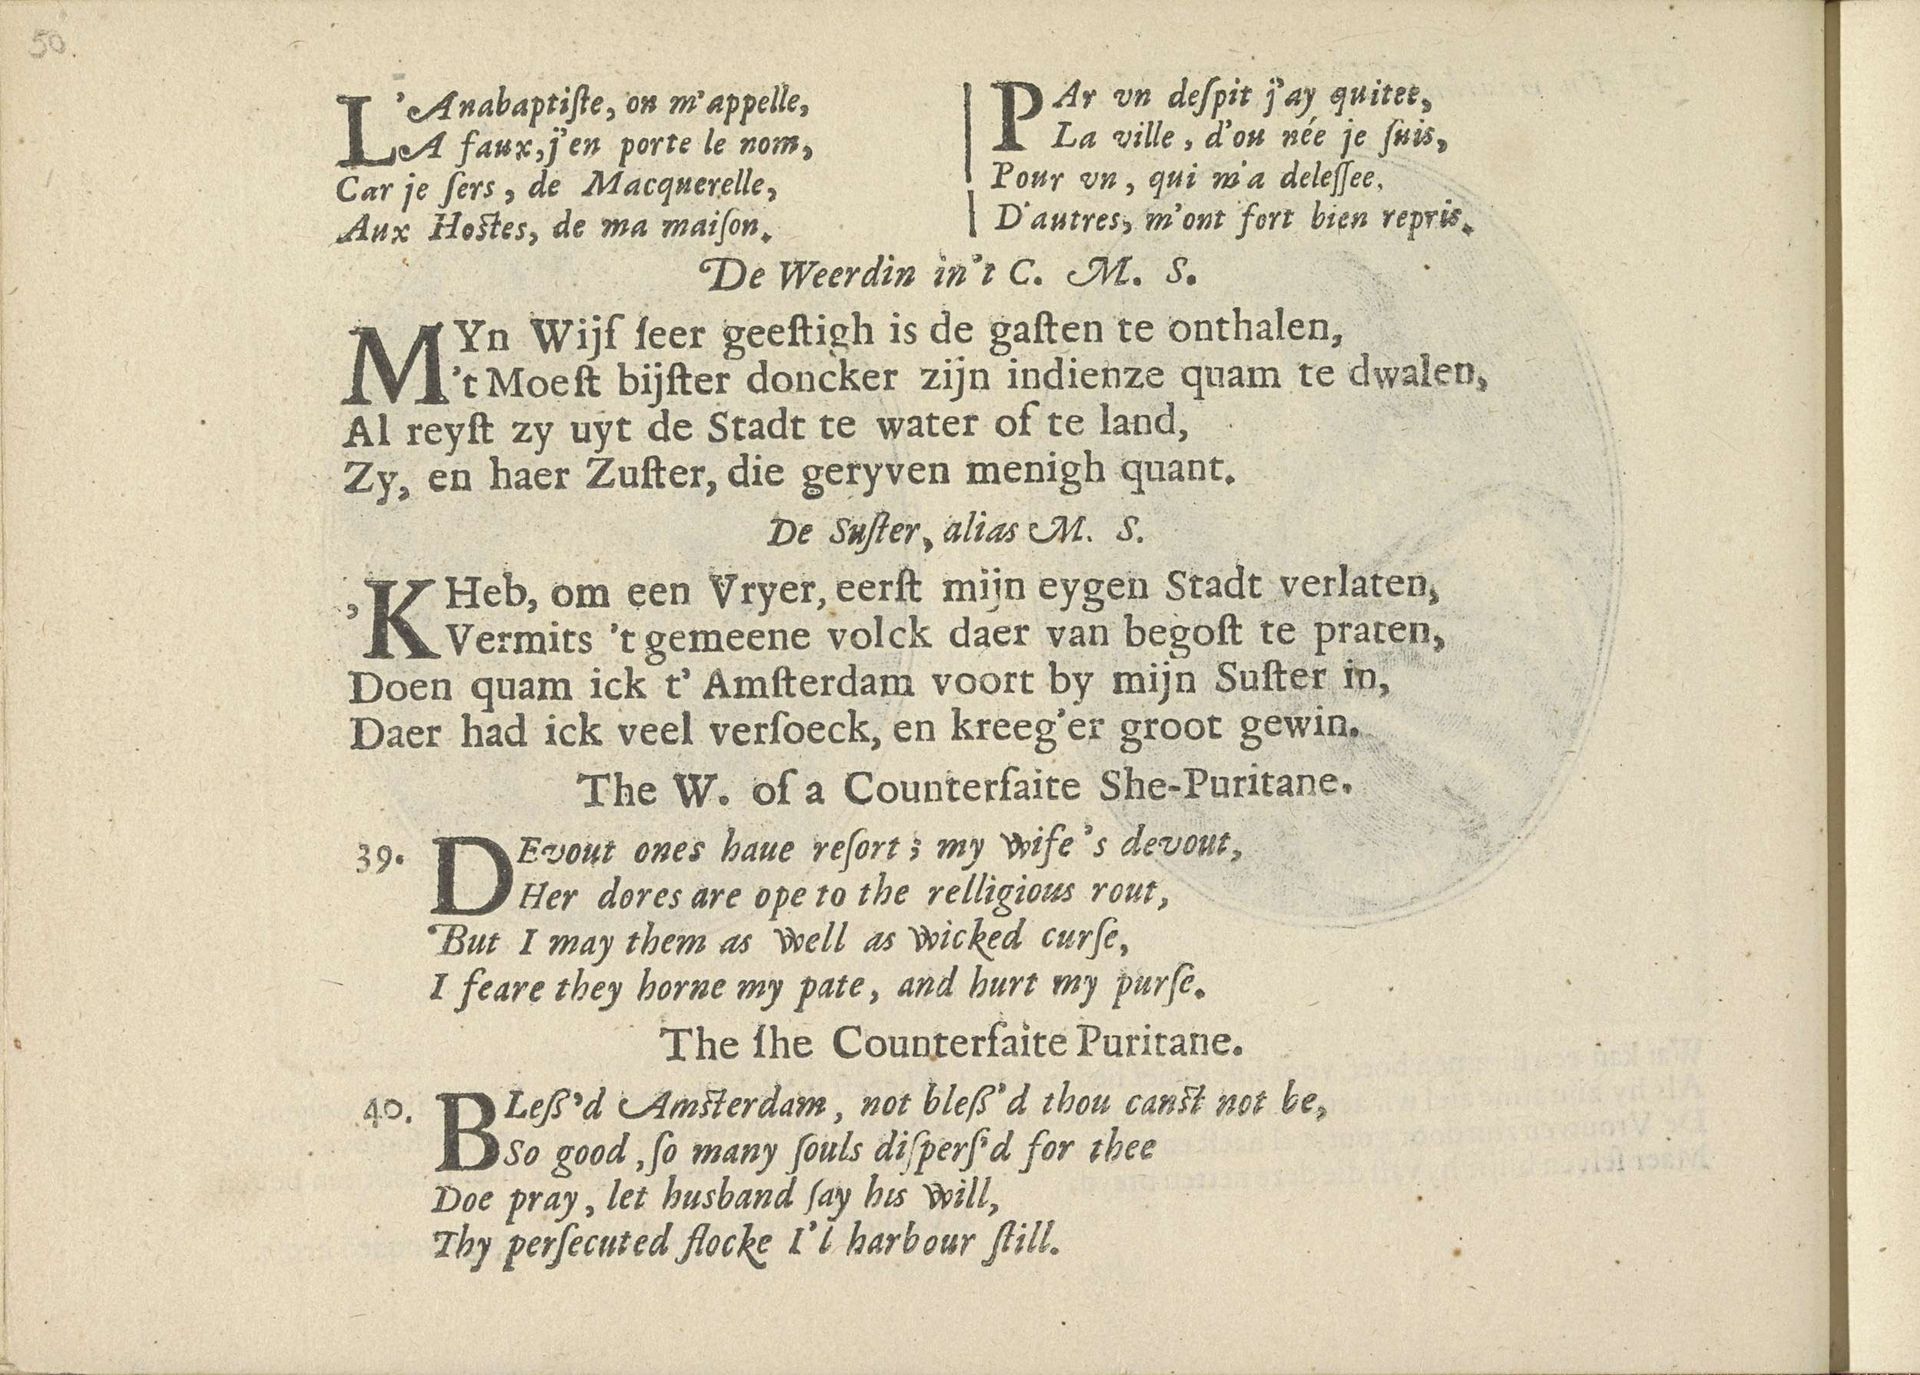 50.
L'Anabaptiſte, on m'appelle,
A faux, j'en porte le nom,
Car je ſers, de Macquerelle,
Aux Hoſtes, de ma maiſon.
PAr vn deſpit j'ay quitee,
La ville, d'ou née je ſuis,
Pour vn, qui m'a deleſſee,
D'autres, m'ont fort bien repris.
De Weerdin in't C. M. S.
MYn Wijf ſeer geeſtigh is de gaſten te onthalen,
't Moeſt bijſter doncker zijn indienze quam te dwalen,
Al reyſt zy uyt de Stadt te water of te land,
Zy, en haer Zuſter, die geryven menigh quant.
De Suſter, alias M. S.
'K Heb, om een Vryer, eerſt mijn eygen Stadt verlaten,
Vermits 't gemeene volck daer van begoſt te praten,
Doen quam ick t' Amſterdam voort by mijn Suſter in,
Daer had ick veel verſoeck, en kreeg'er groot gewin.
The W. of a Counterfaite She-Puritane.
39. DEvout ones haue reſort; my wife's devout,
Her dores are ope to the relligious rout,
But I may them as well as wicked curſe,
I feare they horne my pate, and hurt my purſe.
The ſhe Counterfaite Puritane.
40. BLeß'd Amſterdam, not bleß'd thou canſt not be,
So good, ſo many ſouls diſperſ'd for thee
Doe pray, let husband ſay his will,
Thy perſecuted flocke I'l harbour ſtill.